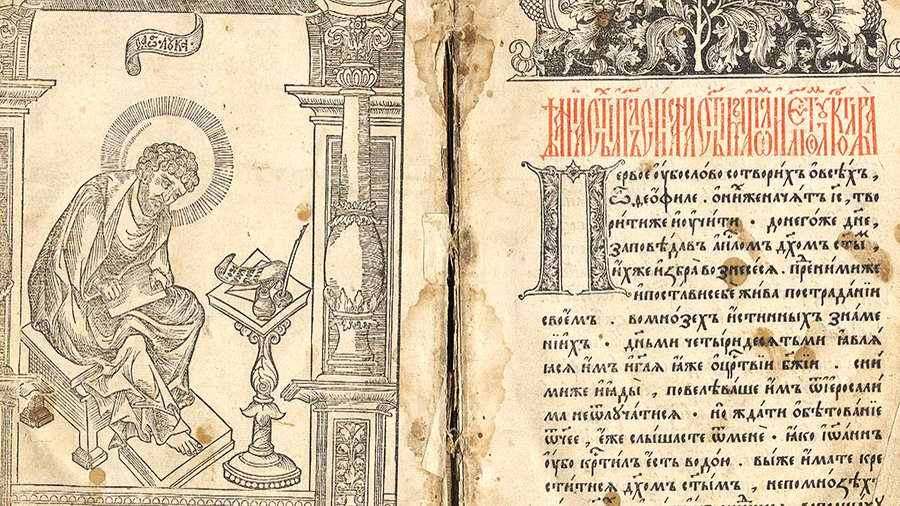 лꙋка
Первое ᲂубо слово сотворихъ ѡ всѣхъ ,
ѽ деѡфиле . ѡ нихже начатъ і҃с , тво
рити же и ᲂучити . донегоже дн҃е ,
заповѣдав апⷭ҇ломъ дх҃омъ ст҃ымъ ,
ихже избра вознесесѧ . пред ними же
и постави себе жива по страданїи
своемъ . во мнозѣхъ истинныхъ зна́ме
нїихъ . дн҃ьми четыридесѧтьми ꙗвлѧ
ꙗсѧ имъ и гл҃ѧ ꙗже ѡ црⷭ҇твїи бж҃їи . с ни
миже и ꙗды , повелѣваше имъ ѿ іерⷭ҇али
ма не ѿлꙋчатисѧ . но ждати ѡбѣтованїе
ѿч҃ее , еже слышасте ѿ мене . ꙗко іѡаннъ
ᲂубо крⷭ҇тилъ есть водою . вы же имате кре
ститисѧ дх҃омъ ст҃ымъ , не по мнозѣхъ